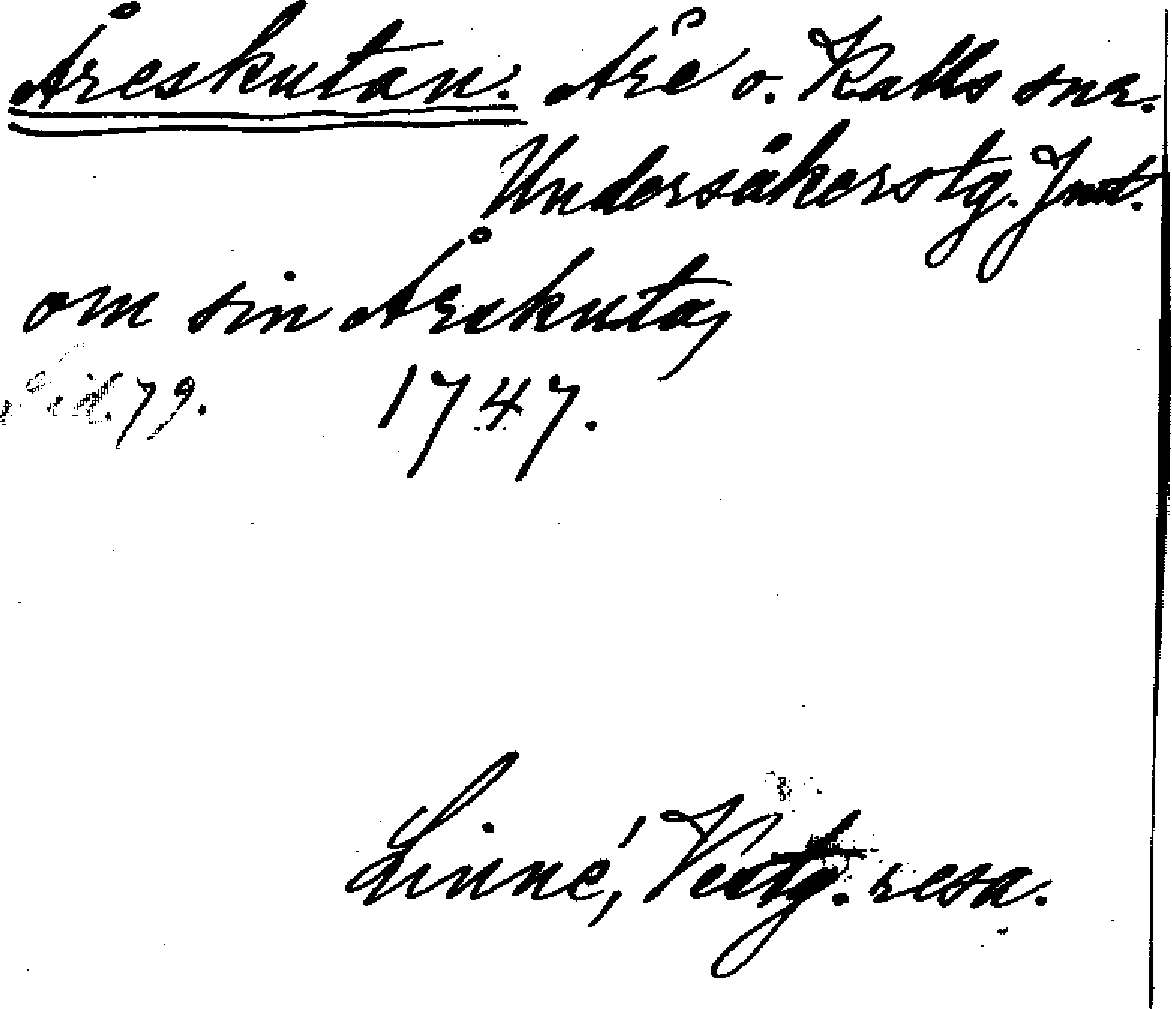 Åreskutan. Åre o. Kalls snr.
Undersåkers tg. Jmt.
om sin Åreskuta,
Sid. 79. 1747.
Linné, Vestg. resa.